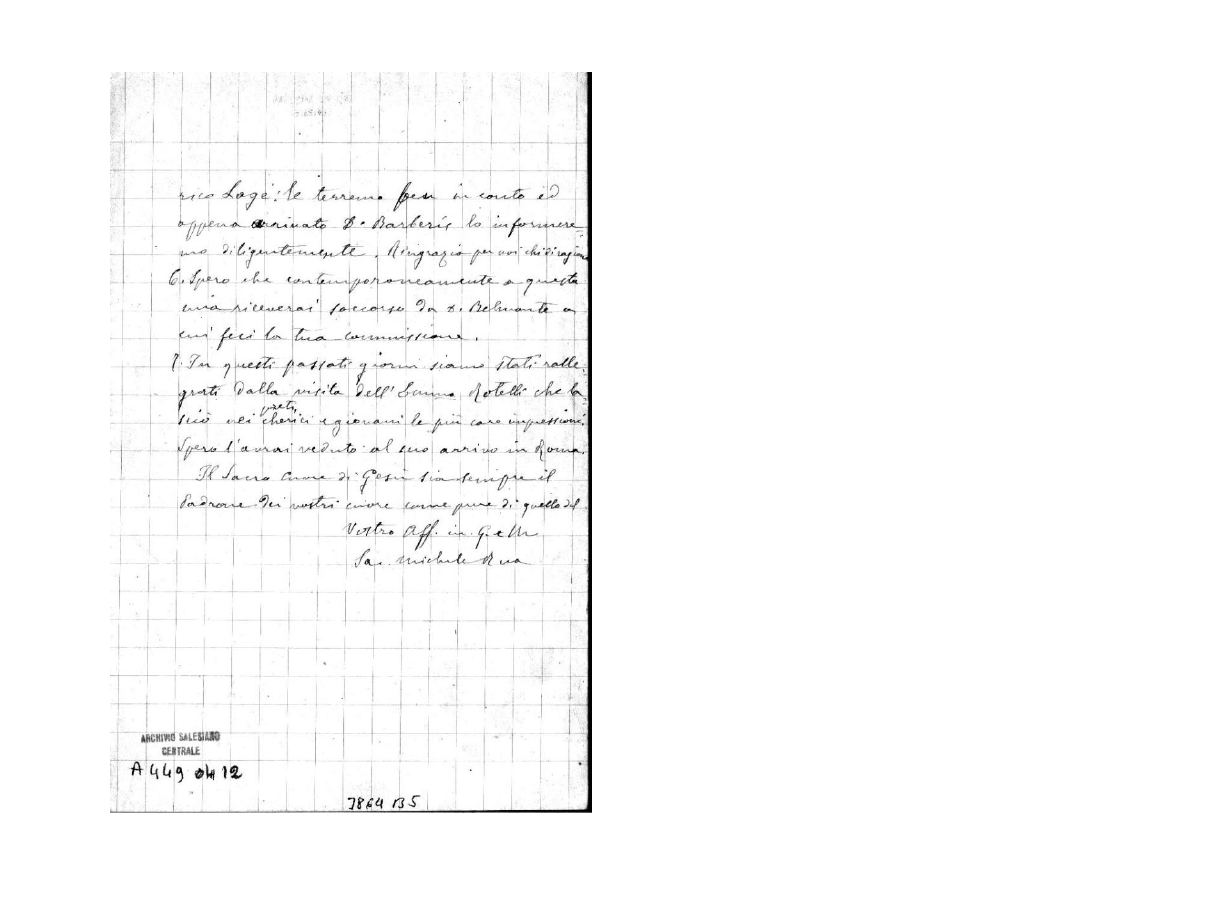 rico Lagé: le terremo ben in conto ed
appena arrivato D. Barberis lo informere-
mo diligentemente. Ringrazio per voi chi di ragione
6. Spero che contemporaneamente a questa
mia riceverai soccorso da D. Belmonte a
cui feci la tua commissione.
7. In questi passati giorni siamo stati ralle-
grati dalla visita dell'Em.mo Rotelli che la-
preti
sciò nei cherici e giovani le più care impressioni.
Spero l'avrai veduto al suo arrivo in Roma.
Il Sacro Cuore di Gesù sia sempre il
Padrone dei vostri cuore come pure di quello del
Vostro Aff. in G. e M.
Sac. Michele Rua
ARCHIVIO SALESIANO
CENTRALE
A 449 04 12
3864 B5